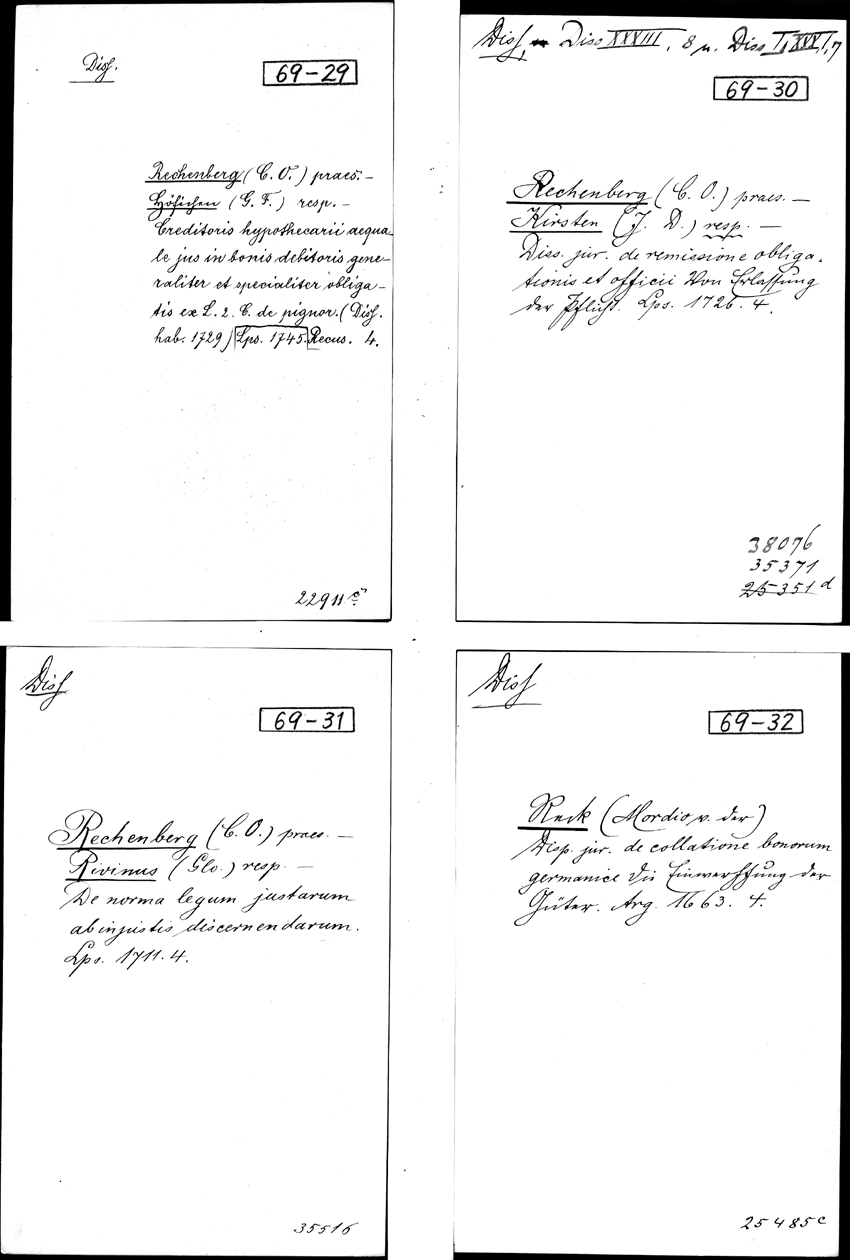 Diss.
69-29
Rechenberg (C. O.) praes. –
Höfichen (G. F.) resp. –
Creditoris hypothecarii aequa-
le jus in bonis debitoris gene-
raliter et specialiter obliga-
tis ex L. 2. C. de pignor. (Diss.
hab. 1729) Lps. 1745. Recus. 4.
22911
Diss, Diss XXXIII, 8 u. Diss
69-30
Rechenberg (C. O.) praes. –
Kirsten (J. D.) resp. –
Diss. jur. de remissione obliga-
tionis et officii Von Erlassung
der Pflicht. Lps. 1726. 4.
38076
35371
25351 d
Diss
69-31
Rechenberg (C. O.) praes. –
Rivinus (Glo.) resp. –
De norma legum justarum
ab injustis discernendarum.
Lps. 1711. 4.
35516
Diss
69-32
Reck (Mordio v. der)
Disp. jur. de collatione bonorum
germanice Die Einwerffung der
Güter. Arg. 1663. 4.
25485 c